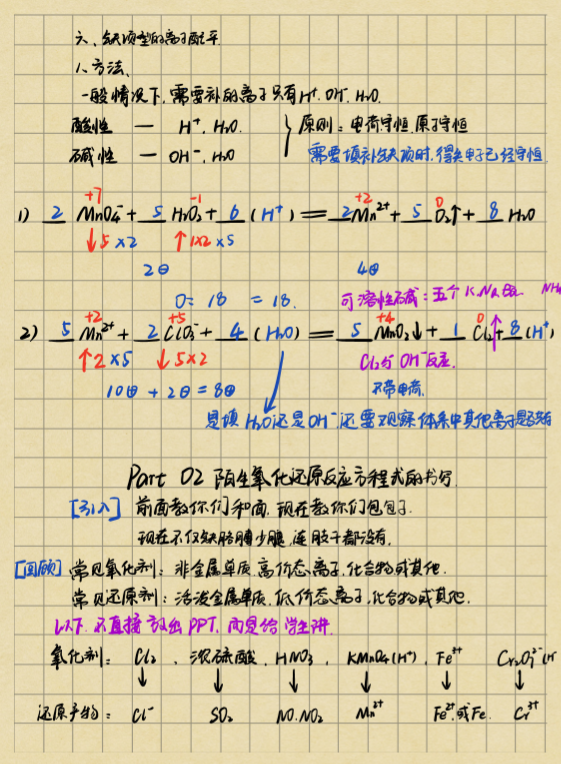 六、缺项型的离子配平
1、方法、
一般情况下,需要补的离子只有H⁺. OH⁻. H₂O.
酸性 — H⁺, H₂O. } 原则:电荷守恒 原子守恒
碱性 — OH⁻, H₂O 需要填补缺项时,得失电子已经守恒
+7 -1 +2 0
1) 2 MnO₄⁻ + 5 H₂O₂ + 6 (H⁺) == 2 Mn²⁺ + 5 O₂↑ + 8 H₂O
↓5×2 ↑1×2×5
2⊖ 4⊕
O: 18 = 18. 可溶性碱:五个 K. Na. Ba.
+2 +5 +4 0
2) 5 Mn²⁺ + 2 ClO₃⁻ + 4 (H₂O) == 5 MnO₂↓ + 1 Cl₂↑ + 8 (H⁺)
↑2×5 ↓5×2 Cl₂与OH⁻反应.
10⊕ + 2⊖ = 8⊕ 不带电荷.
是填H₂O还是OH⁻还要观察体系中其他离子是否共存
Part 02 陌生氧化还原反应方程式的书写
[引入] 前面教你们和面,现在教你们包包子.
现在不仅缺胳膊少腿,连肢干都没有.
[回顾] 常见氧化剂:非金属单质.高价态离子.化合物或其他.
常见还原剂:活泼金属单质.低价态离子.化合物或其他.
以下不直接放出PPT,而是给学生讲.
氧化剂: Cl₂ 、浓硫酸、HNO₃、KMnO₄(H⁺)、Fe³⁺ Cr₂O₇²⁻(H
↓ ↓ ↓ ↓ ↓ ↓
还原产物: Cl⁻ SO₂ NO.NO₂ Mn²⁺ Fe²⁺或Fe. Cr³⁺